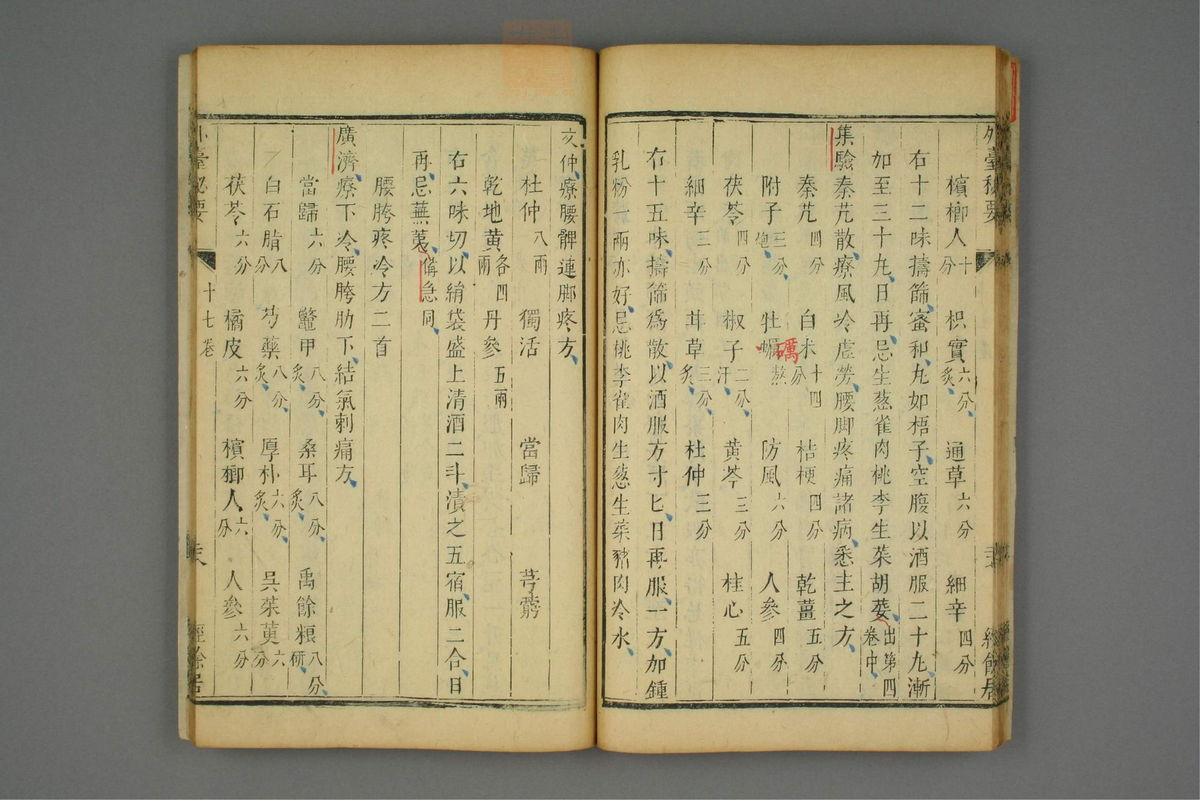 外臺秘要
檳榔人十分 枳實六分炙 通草六分 細辛四分
右十二味擣篩蜜和丸如梧子空腹以酒服二十丸漸
加至三十丸日再忌生葱雀肉桃李生菜胡荽出第四卷中
集驗秦艽散療風冷虛勞腰脚疼痛諸病悉主之方
秦艽四分 白朮十四分 桔梗四分 乾薑五分
附子三分炮 牡蠣熬 防風六分 人參四分
茯苓四分 椒子二分汗 黃芩三分 桂心五分
細辛三分 莽草三分炙 杜仲三分
右十五味擣篩爲散以酒服方寸匕日再服一方加鍾
乳粉一兩亦好忌桃李雀肉生葱生菜豬肉冷水
文仲療腰髀連脚疼方
杜仲八兩 獨活 當歸 芎藭
乾地黃各四兩 丹參五兩
右六味切以絹袋盛上清酒二斗漬之五宿服二合日
再忌蕪荑備急同
腰胯疼冷方二首
廣濟療下冷腰胯肋下結氣刺痛方
當歸六分 鼈甲八分炙 桑耳八分炙 禹餘糧八分研
白石脂八分 芍藥八分炙 厚朴六分炙 吳茱萸六分
茯苓六分 橘皮六分 檳榔人六分 人參六分
外臺秘要 十七卷 經餘居